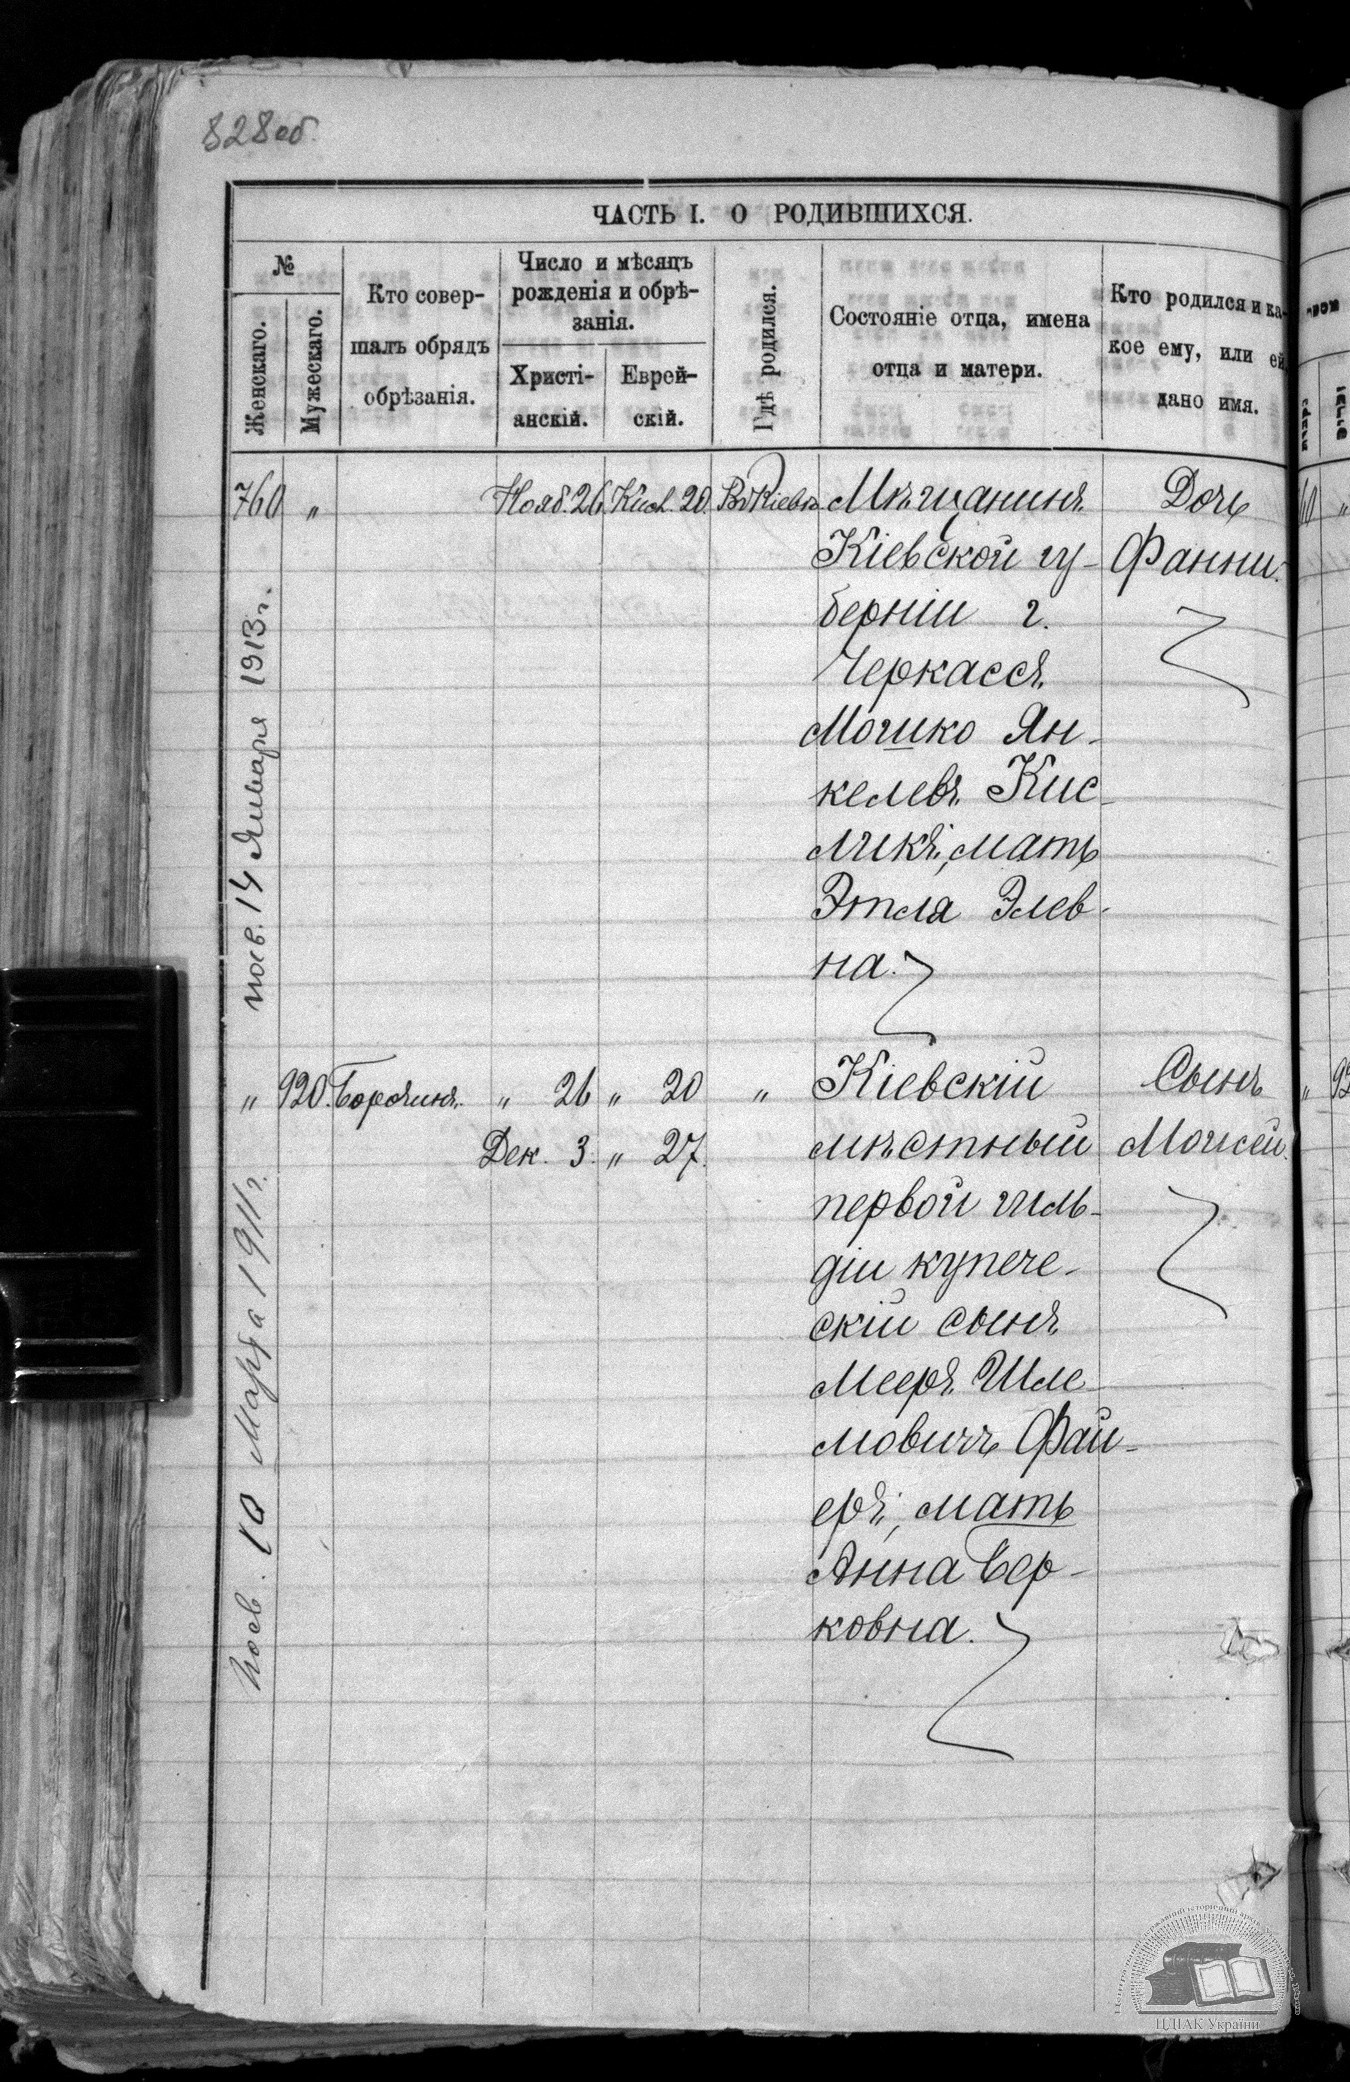 828об.
ЧАСТЬ I. О РОДИВШИХСЯ.
№
Женскаго.
Мужескаго.
Кто совер-
шалъ обрядъ
обрѣзанія.
Число и мѣсяцъ
рожденія и обрѣ-
занія.
Христі-
анскій.
Еврей-
скій.
Гдѣ родился.
Состояніе отца, имена
отца и матери.
Кто родился и ка-
кое ему, или ей
дано имя.
760 " Нояб. 26 Кисл. 20. Въ Кіевѣ Мѣщанинъ Дочь
Кіевской гу- Фанни.
берніи г.
Черкассъ
Мошко Ян-
келевъ Кис-
ликъ, мать
Этля Элев-
на.
" 920. Бородинъ. " 26 " 20 " Кіевскій Сынъ
Дек. 3. " 27. мѣстный Моисей.
первой гиль-
діи купече-
скій сынъ
Мееръ Шле
мовичъ Фай-
еръ, мать
Анна Бер-
ковна.
посв. 14 Января 1913 г.
Посв. 10 Марта 1911 г.
ЦДІАК України